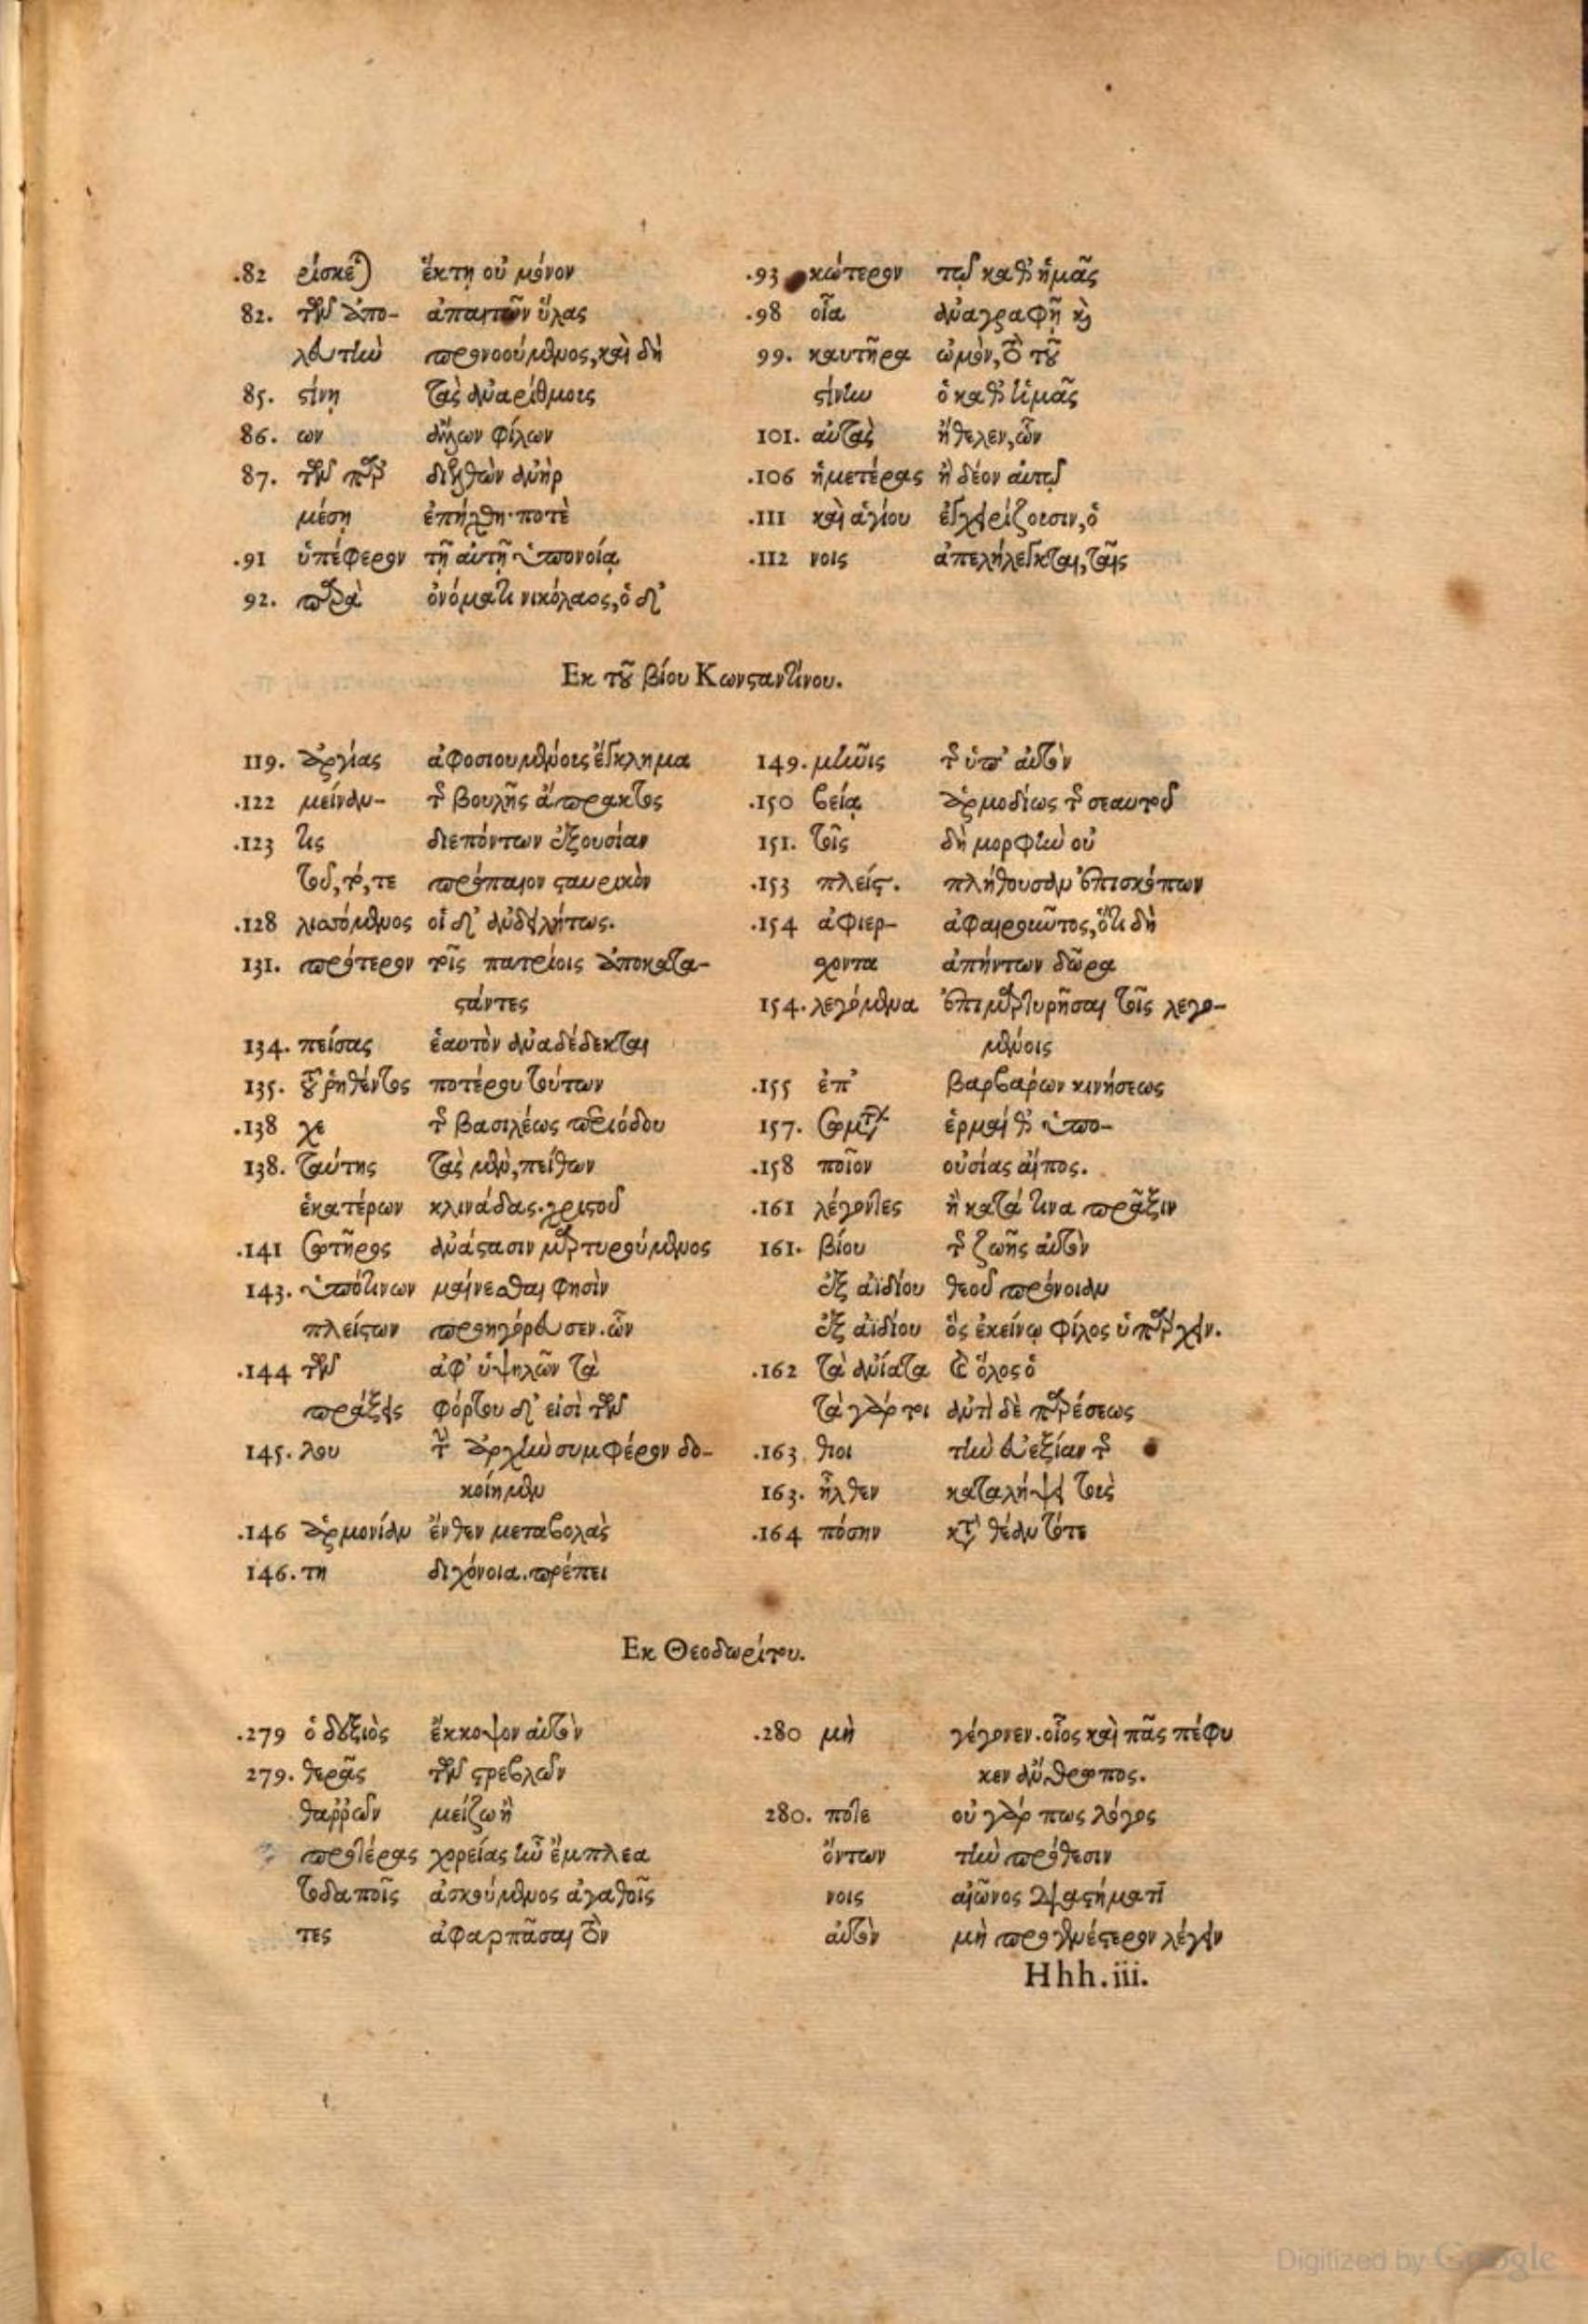 .82 είσκε) ἕκτη οὐ μόνον
82. τῶν ἀπο- ἁπασῶν ὕλας
λαυτὴν προνοούμενος, καὶ δὴ
85. στίνη τὰς ἀναρίθμοις
86. ων δήλων φίλων
87. τῶν παρ διελθὼν ἀνὴρ
μέση ἐπήχθη· ποτὲ
.91 ὑπέφερον τῇ αὐτῇ ὑπονοίᾳ
92. παρὰ ὀνόματι νικόλαος, ὁ δ'
.93 κώτερον τῷ καθ' ἡμᾶς
.98 οἷα ἀναγραφῇ καὶ
99. καυτῆρα ὠμὸν, ὃ τοῦ
στίνην ὁ καθ' ἡμᾶς
101. αὐτὰς ἤθελεν, ὧν
.106 ἡμετέρας ἢ δέον αὐτῷ
.111 καὶ ἁγίου ἐγχειρίζουσιν, ὁ
.112 νοις ἀπελήλεγκται, ταῖς
Εκ τοῦ βίου Κωνσταντίνου.
119. ἀργίας ἀφοσιουμένοις ἔγκλημα
.122 μείναν- τῆς βουλῆς ἄπρακτος
.123 τις διεπόντων ἐξουσίαν
τοῦ, τό, τε τρόπαιον σταυρικὸν
.128 λιαζόμενος οἱ δ' ἀνδηλήτως.
131. πρότερον τοῖς πατρίοις ἀποκατα-
στάντες
134. πείσας ἑαυτὸν ἀναδέδεκται
135. τοῦ ῥηθέντος ποτέρου τούτων
.138 χε τῆς βασιλέως περιόδου
138. ταύτης τὰς μὲν, πείθων
ἑκατέρων κλινάδας. χριστοῦ
.141 σωτῆρος ἀνάστασιν μαρτυρούμενος
143. ὑπότινων μαίνεσθαι φησὶν
πλείστων προσηγόρευσεν. ὧν
.144 τῶν ἀφ' ὑψηλῶν τὰ
πράξεις φόρτου δ' εἰσὶ τῶν
145. λου τὴν ἀρχὴν συμφέρον δο-
κοίη μὲν
.146 ἁρμονίαν ἔνθεν μεταβολὰς
146. τη διχόνοια. πρέπει
149. μενοῖς τῆς ὑπ' αὐτὸν
.150 βείᾳ ἁρμοδίως τῆς σεαυτοῦ
151. τοῖς δὴ μορφὴν οὐ
.153 πλείστ. πλήθουσαν ἐπισκόπων
.154 ἀφιερ- ἀφαιροῦντος, ὅτι δὴ
χοντα ἁπάντων δῶρα
154. λεγόμενα ἐπιμαρτυρῆσαι τοῖς λεγο-
μένοις
.155 ἐπ' βαρβάρων κινήσεως
157. ἑρμαίῳ ὑπο-
.158 ποῖον οὐσίας αἶπος.
.161 λέγοντες ἢ κατά τινα πρᾶξιν
161. βίου τῆς ζωῆς αὐτὸν
ἐξ ἀϊδίου θεοῦ πρόνοιαν
ἐξ ἀϊδίου ὃς ἐκείνῳ φίλος ὑπάρχειν.
.162 τὰ ἀνίατα ὅλος ὁ
τὰ γάρ τοι ἀντὶ δὲ παρέσεως
.163 θποι τὴν εὐεξίαν τῆς
163. ἦλθεν καταλήψει τοὺς
.164 πόσην κατὰ θέαν τότε
Εκ Θεοδωρίτου.
.279 ὁ δεξιὸς ἔκκοψον αὐτὸν
279. θερᾶς τῶν στρεβλῶν
θαῤῥῶν μείζω ἢ
προτέρας χορείας ἦν ἔμπλεα
τοδαποῖς ἀσκούμενος ἀγαθοῖς
τες ἀφαρπᾶσαι ὃν
.280 μὴ γέγονεν. οἷος καὶ πᾶς πέφυ
κεν ἄνθρωπος.
280. ποτε οὐ γάρ πως λόγος
ὄντων τὴν πρόθεσιν
νοις αἰῶνος διαστήματί
αὐτὸν μὴ προγενέστερον λέγειν
Hhh.iii.
Digitized by Google